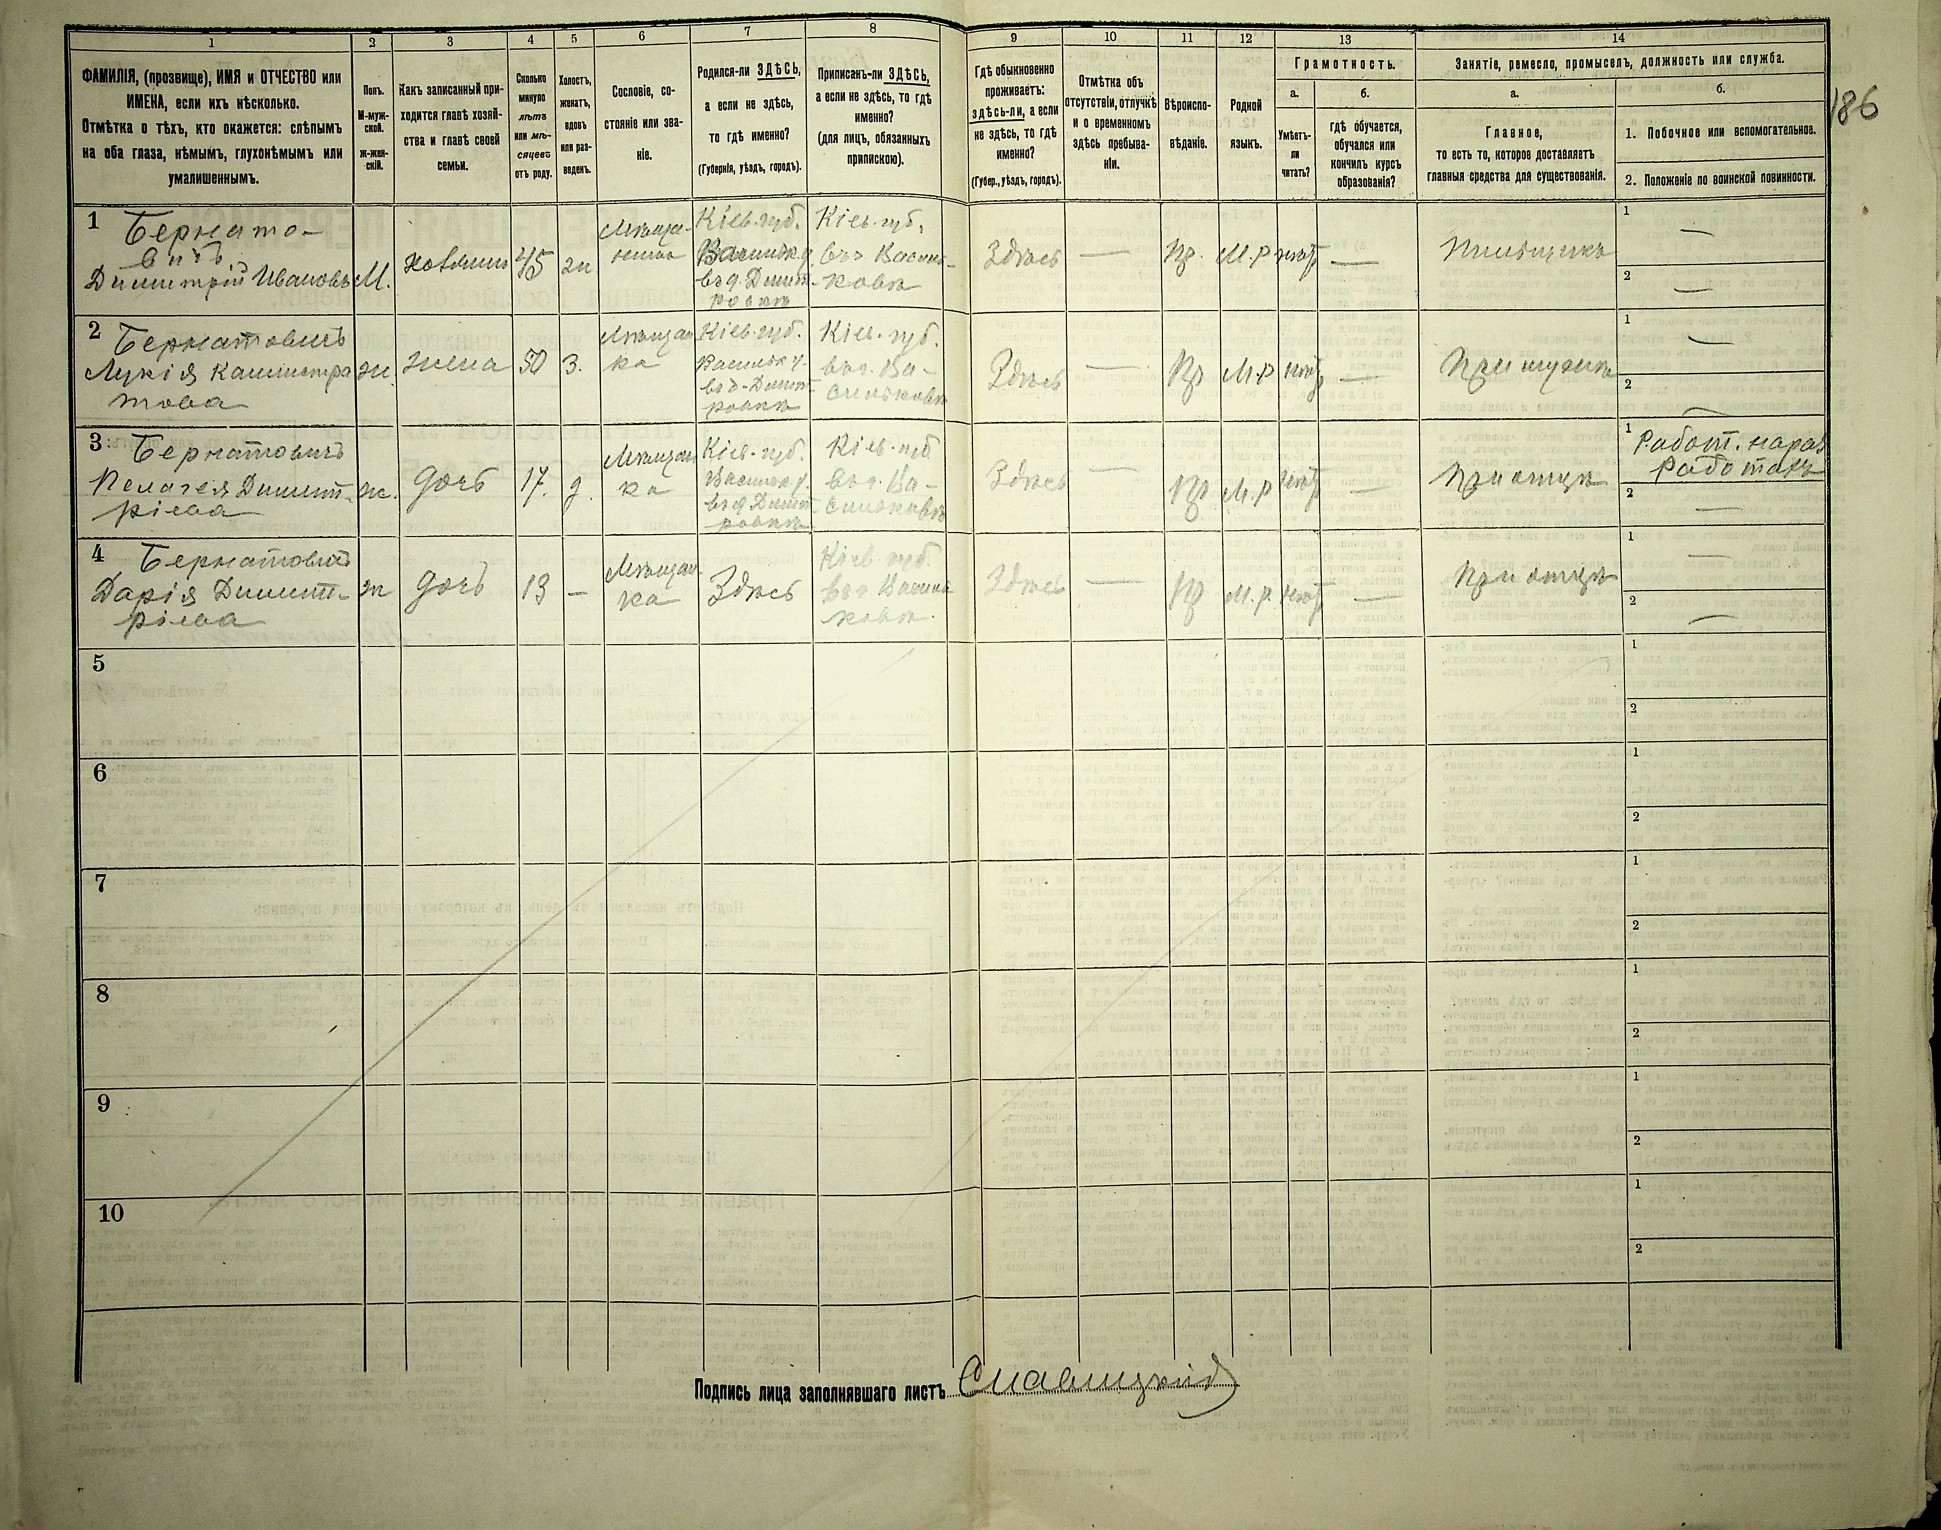 186
1 2 3 4 5 6 7 8 9 10 11 12 13 14
ФАМИЛІЯ, (прозвище), ИМЯ и ОТЧЕСТВО или
ИМЕНА, если ихъ нѣсколько.
Отмѣтка о тѣхъ, кто окажется: слѣпымъ
на оба глаза, нѣмымъ, глухонѣмымъ или
умалишеннымъ.
Полъ.
М-муж-
ской.
ж-жен-
скій.
Какъ записанный при-
ходится главѣ хозяй-
ства и главѣ своей
семьи.
Сколько
минуло
лѣтъ
или мѣ-
сяцевъ
отъ роду.
Холостъ,
женатъ,
вдовъ
или раз-
веденъ.
Сословіе, со-
стояніе или зва-
ніе.
Родился-ли ЗДѢСЬ,
а если не здѣсь,
то гдѣ именно?
(Губернія, уѣздъ, городъ).
Приписанъ-ли ЗДѢСЬ,
а если не здѣсь, то гдѣ
именно?
(для лицъ, обязанныхъ
припискою).
Гдѣ обыкновенно
проживаетъ:
здѣсь-ли, а если
не здѣсь, то гдѣ
именно?
(Губер., уѣздъ, городъ).
Отмѣтка объ
отсутствіи, отлучкѣ
и о временномъ
здѣсь пребыва-
ніи.
Вѣроиспо-
вѣданіе.
Родной
языкъ.
Грамотность.
а.
Умѣетъ-
ли
читать?
б.
гдѣ обучается,
обучался или
кончилъ курсъ
образованія?
Занятіе, ремесло, промыселъ, должность или служба.
а.
Главное,
то есть то, которое доставляетъ
главныя средства для существованія.
б.
1. Побочное или вспомогательное.
2. Положеніе по воинской повинности.
1
Бернато-
вичъ
Димитрій Ивановъ
М.
хозяинъ
45
Кіев. губ.
Васильк. у.
въ д. Димит-
ровкѣ
Кіев. губ.
въ г. Василь-
ковѣ
Здѣсь
—
Пр.
М.р
нѣтъ
—
Пильщикъ
1
—
2
—
2
Бернатовичъ
Лукія Калистра
това
ж.
жена
50
з.
Мѣщан
ка
Кіев. губ.
Васильк. у.
въ д. Димит
ровкѣ
Кіев. губ.
въ г. Ва-
сильковѣ
Здѣсь
—
Пр
М.р
нѣтъ
—
При мужѣ
1
—
2
—
3
Бернатовичъ
Пелагея Димит
ріева
ж.
дочь
17.
д.
Мѣщан
ка
Кіев. губ.
Васильк. у.
въ д. Димит
ровкѣ
Кіев. губ
въ г. Ва-
сильковѣ
Здѣсь
—
Пр
М.р
нѣтъ
—
При отцѣ
1
Работ. на раз
работкѣ
2
—
4
Бернатовичъ
Дарія Димит-
ріева
ж
дочь
13
—
Мѣщан-
ка
Здѣсь
Кіев. губ.
въ г. Василь
ковѣ.
Здѣсь
—
Пр
М.р.
нѣтъ
—
При отцѣ
1
—
2
—
5
1
2
6
1
2
7
1
2
8
1
2
9
1
2
10
1
2
Подпись лица заполнявшаго листъ